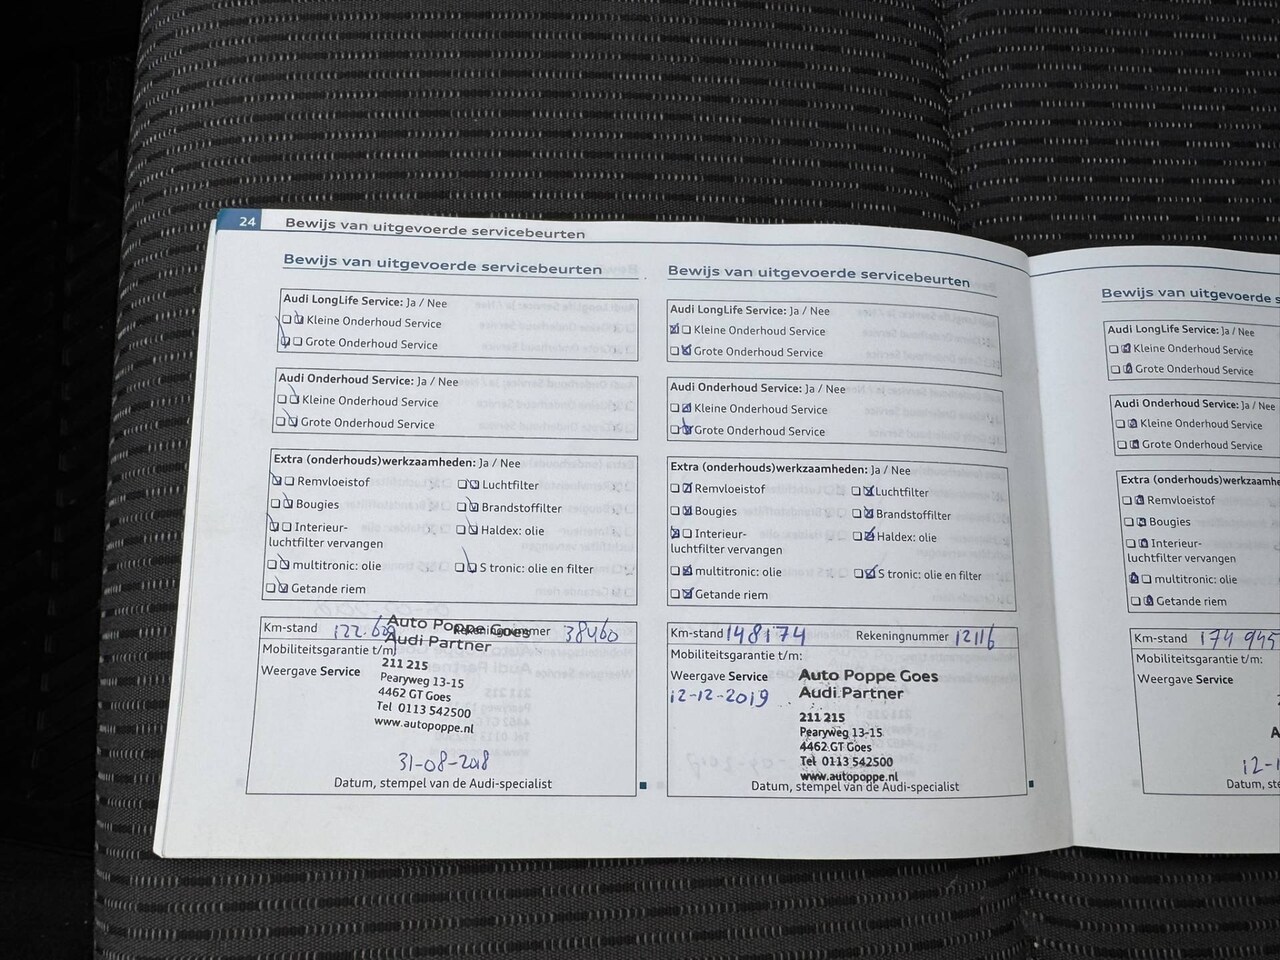 24 Bewijs van uitgevoerde servicebeurten
Bewijs van uitgevoerde servicebeurten
Audi LongLife Service: Ja / Nee
Kleine Onderhoud Service
Grote Onderhoud Service
Audi Onderhoud Service: Ja / Nee
Kleine Onderhoud Service
Grote Onderhoud Service
Extra (onderhouds)werkzaamheden: Ja / Nee
Remvloeistof Luchtfilter
Bougies Brandstoffilter
Interieur- Haldex: olie
luchtfilter vervangen
multitronic: olie S tronic: olie en filter
Getande riem
Km-stand Rekeningnummer 38460
Auto Poppe Goes
Audi Partner
Mobiliteitsgarantie t/m:
Weergave Service
211 215
Pearyweg 13-15
4462 GT Goes
Tel 0113 542500
www.autopoppe.nl
31-08-2018
Datum, stempel van de Audi-specialist
Bewijs van uitgevoerde servicebeurten
Audi LongLife Service: Ja / Nee
Kleine Onderhoud Service
Grote Onderhoud Service
Audi Onderhoud Service: Ja / Nee
Kleine Onderhoud Service
Grote Onderhoud Service
Extra (onderhouds)werkzaamheden: Ja / Nee
Remvloeistof Luchtfilter
Bougies Brandstoffilter
Interieur- Haldex: olie
luchtfilter vervangen
multitronic: olie S tronic: olie en filter
Getande riem
Km-stand 148174 Rekeningnummer 12116
Mobiliteitsgarantie t/m:
Weergave Service
12-12-2019
Auto Poppe Goes
Audi Partner
211 215
Pearyweg 13-15
4462 GT Goes
Tel 0113 542500
www.autopoppe.nl
Datum, stempel van de Audi-specialist
Bewijs van uitgevoerde s
Audi LongLife Service: Ja / Nee
Kleine Onderhoud Service
Grote Onderhoud Service
Audi Onderhoud Service: Ja / Nee
Kleine Onderhoud Service
Grote Onderhoud Service
Extra (onderhouds)werkzaamhe
Remvloeistof
Bougies
Interieur-
luchtfilter vervangen
multitronic: olie
Getande riem
Km-stand 174 945
Mobiliteitsgarantie t/m:
Weergave Service
A
12-1
Datum, ste